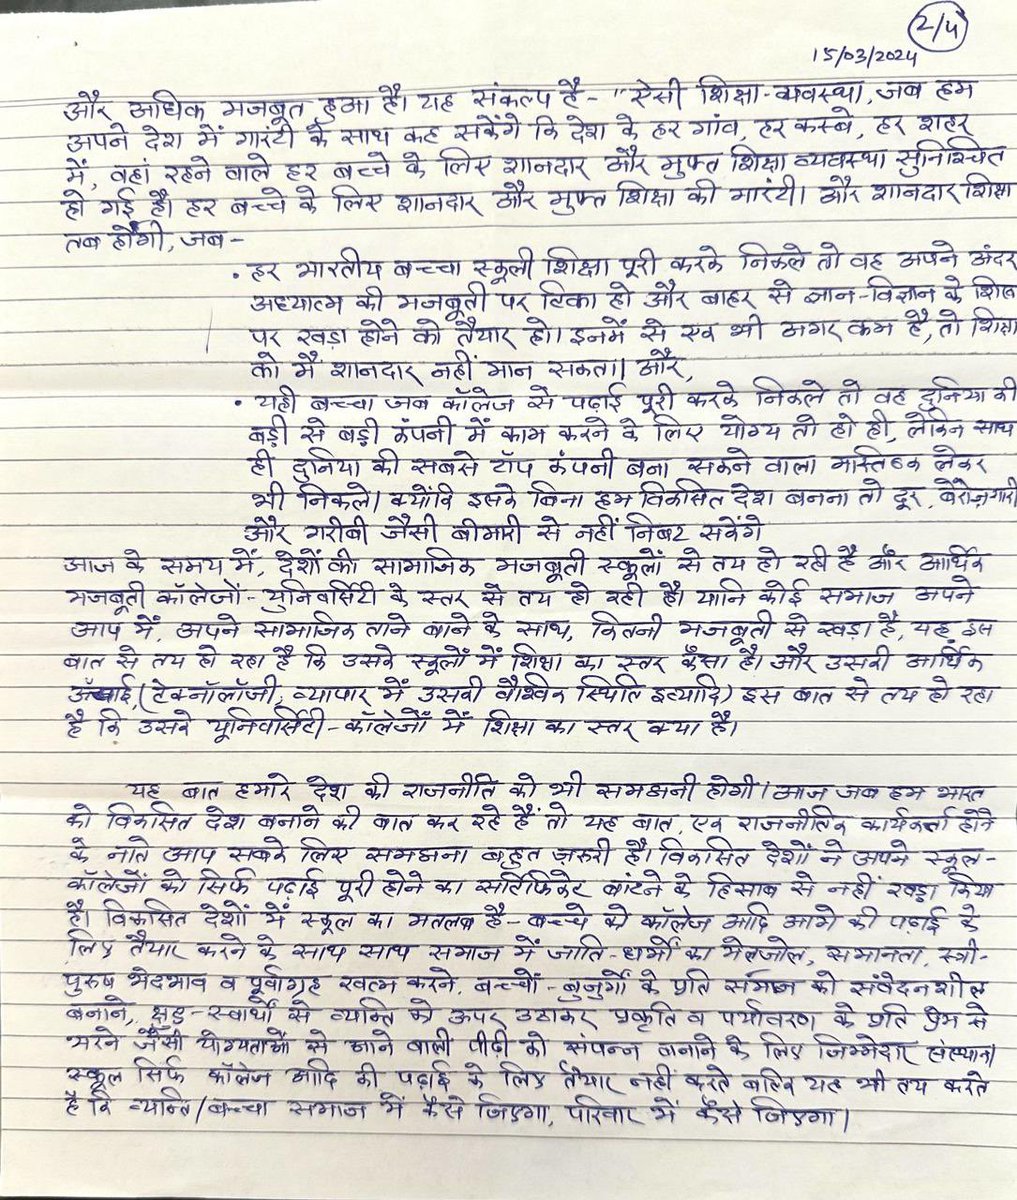 2/4
15/03/2024
और अधिक मजबूत हुआ है। यह संकल्प है- "ऐसी शिक्षा-व्यवस्था, जब हम
अपने देश में गारंटी के साथ कह सकेंगे कि देश के हर गांव, हर कस्बे, हर शहर
में, वहां रहने वाले हर बच्चे के लिए शानदार और मुफ्त शिक्षा व्यवस्था सुनिश्चित
हो गई है। हर बच्चे के लिए शानदार और मुफ्त शिक्षा की गारंटी। और शानदार शिक्षा
तब होगी, जब-
• हर भारतीय बच्चा स्कूली शिक्षा पूरी करके निकले तो वह अपने अंदर
अध्यात्म की मजबूती पर टिका हो और बाहर से ज्ञान-विज्ञान के शिखर
पर खड़ा होने को तैयार हो। इनमें से एक भी अगर कम है, तो शिक्षा
को मैं शानदार नहीं मान सकता। और,
• यही बच्चा जब कॉलेज से पढ़ाई पूरी करके निकले तो वह दुनिया की
बड़ी से बड़ी कंपनी में काम करने के लिए योग्य तो हो ही, लेकिन साथ
ही दुनिया की सबसे टॉप कंपनी बना सकने वाला मस्तिष्क लेकर
भी निकले। क्योंकि इसके बिना हम विकसित देश बनना तो दूर, बेरोज़गारी
और गरीबी जैसी बीमारी से नहीं निबट सकेंगे
आज के समय में, देशों की सामाजिक मजबूती स्कूलों से तय हो रही है और आर्थिक
मजबूती कॉलेजों-युनिवर्सिटी के स्तर से तय हो रही है। यानि कोई समाज अपने
आप में, अपने सामाजिक ताने बाने के साथ, कितनी मजबूती से खड़ा है, यह इस
बात से तय हो रहा है कि उसके स्कूलों में शिक्षा का स्तर कैसा है। और उसकी आर्थिक
ऊंचाई, (टेक्नॉलॉजी, व्यापार में उसकी वैश्विक स्थिति इत्यादि) इस बात से तय हो रहा
है कि उसके यूनिवर्सिटी-कॉलेजों में शिक्षा का स्तर क्या है।
यह बात हमारे देश की राजनीति को भी समझनी होगी। आज जब हम भारत
को विकसित देश बनाने की बात कर रहे हैं तो यह बात, एक राजनीतिक कार्यकर्त्ता होने
के नाते आप सबके लिए समझना बहुत ज़रूरी है। विकसित देशों ने अपने स्कूल-
कॉलेजों को सिर्फ पढ़ाई पूरी होने का सर्टिफिकेट बांटने के हिसाब से नहीं खड़ा किया
है। विकसित देशों में स्कूल का मतलब है- बच्चे को कॉलेज आदि आगे की पढ़ाई के
लिए तैयार करने के साथ साथ समाज में जाति-धर्मों का मेलजोल, समानता, स्त्री-
पुरुष भेदभाव व पूर्वाग्रह खत्म करने, बच्चों-बुजुर्गों के प्रति समाज को संवेदनशील
बनाने, क्षुद्र-स्वार्थों से व्यक्ति को ऊपर उठाकर प्रकृति व पर्यावरण के प्रति प्रेम से
भरने जैसी योग्यताओं से आने वाली पीढ़ी को संपन्न बनाने के लिए जिम्मेदार संस्थान।
स्कूल सिर्फ कॉलेज आदि की पढ़ाई के लिए तैयार नहीं करते बल्कि यह भी तय करते
है कि व्यक्ति/बच्चा समाज में कैसे जिएगा, परिवार में कैसे जिएगा।